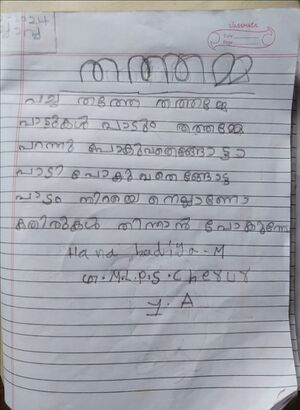 classmate
Date
Page
തത്തമ്മ
പച്ച തത്തേ തത്തമ്മേ
പാട്ടുകൾ പാടും തത്തമ്മേ
പറന്നു പോകുവതെങ്ങോട്ടാ
പാടി പോകുവതെങ്ങോട്ട
പാടം നിറയെ നെല്ലാണോ
കതിരുകൾ തിന്നാൻ പോകുന്നോ
Hana hadiya-M
G.M.L.P.S.Cherur
1.A